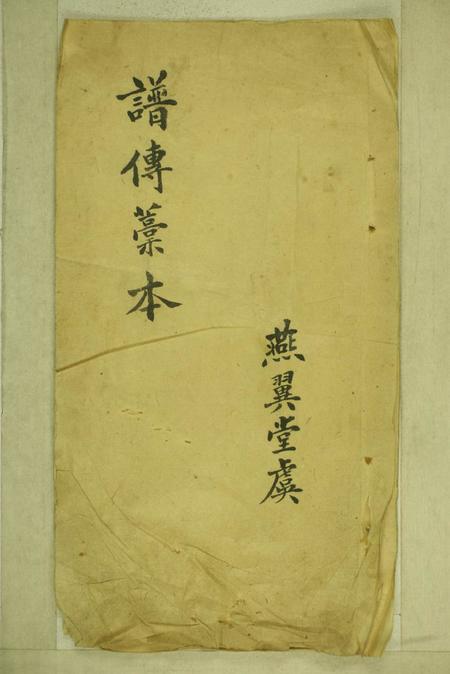 譜傳藁本
燕翼堂虞